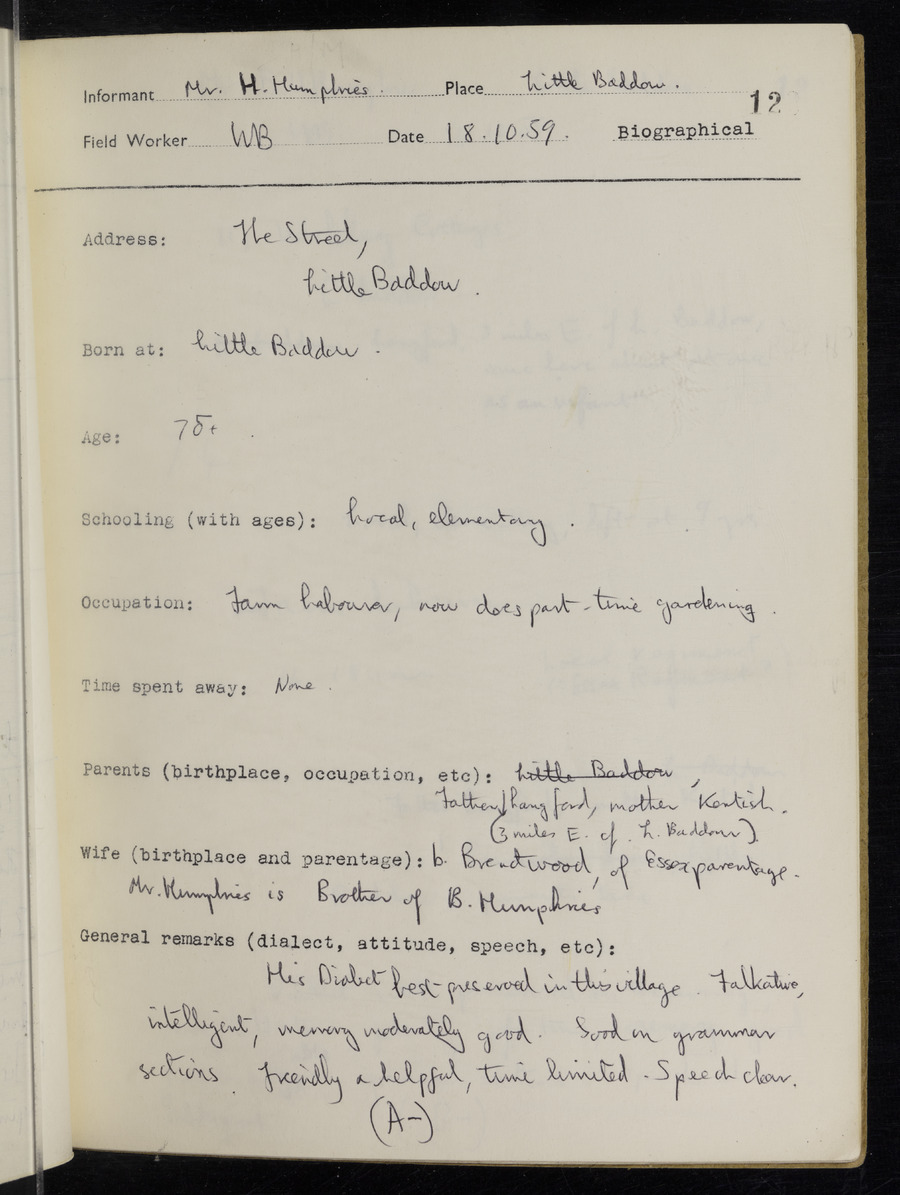 Informant Mr. H. Humphries. Place Little Baddow.
12
Field Worker WB Date 18.10.59. Biographical
Address: The Street,
Little Baddow.
Born at: Little Baddow.
Age: 75+.
Schooling (with ages): Local, elementary.
Occupation: Farm Labourer, now does part-time gardening.
Time spent away: None.
Parents (birthplace, occupation, etc): Little Baddow,
Father Langford, mother Kentish.
(3 miles E. of L. Baddow)
Wife (birthplace and parentage): b. Brentwood, of Essex parentage.
Mr. Humphries is Brother of B. Humphries
General remarks (dialect, attitude, speech, etc):
His Dialect best-preserved in this village. Talkative,
intelligent, memory moderately good. Good on grammar
sections. Friendly & helpful, time limited. Speech clear.
(A-)